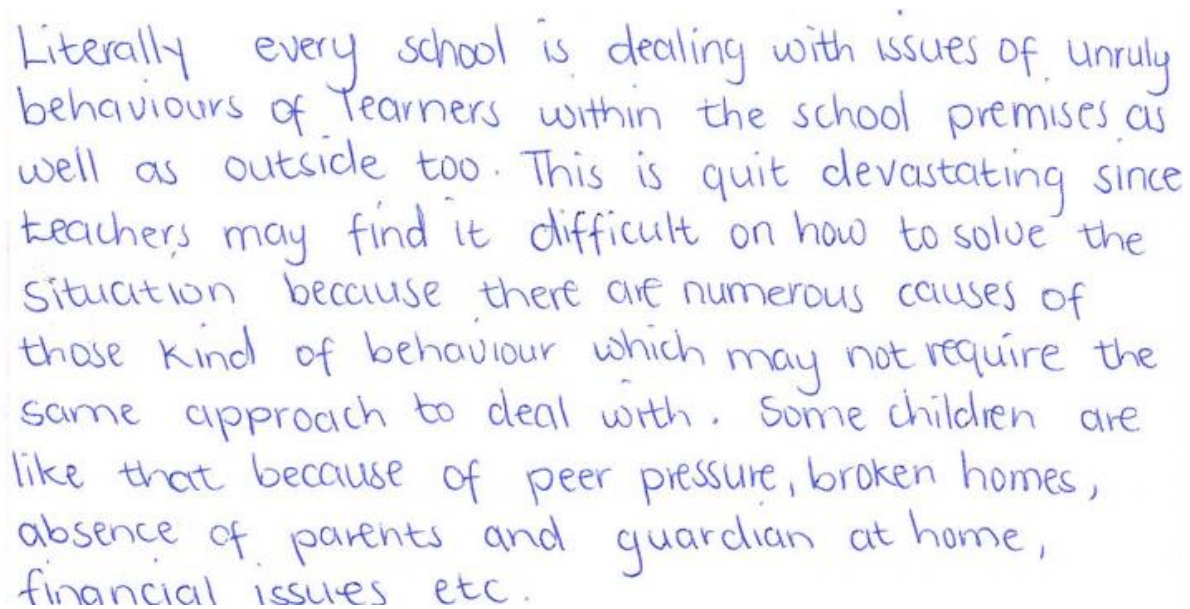 Literally every school is dealing with issues of unruly
behaviours of learners within the school premises as
well as outside too. This is quit devastating since
teachers may find it difficult on how to solve the
situation because there are numerous causes of
those kind of behaviour which may not require the
same approach to deal with. Some children are
like that because of peer pressure, broken homes,
absence of parents and guardian at home,
financial issues etc.